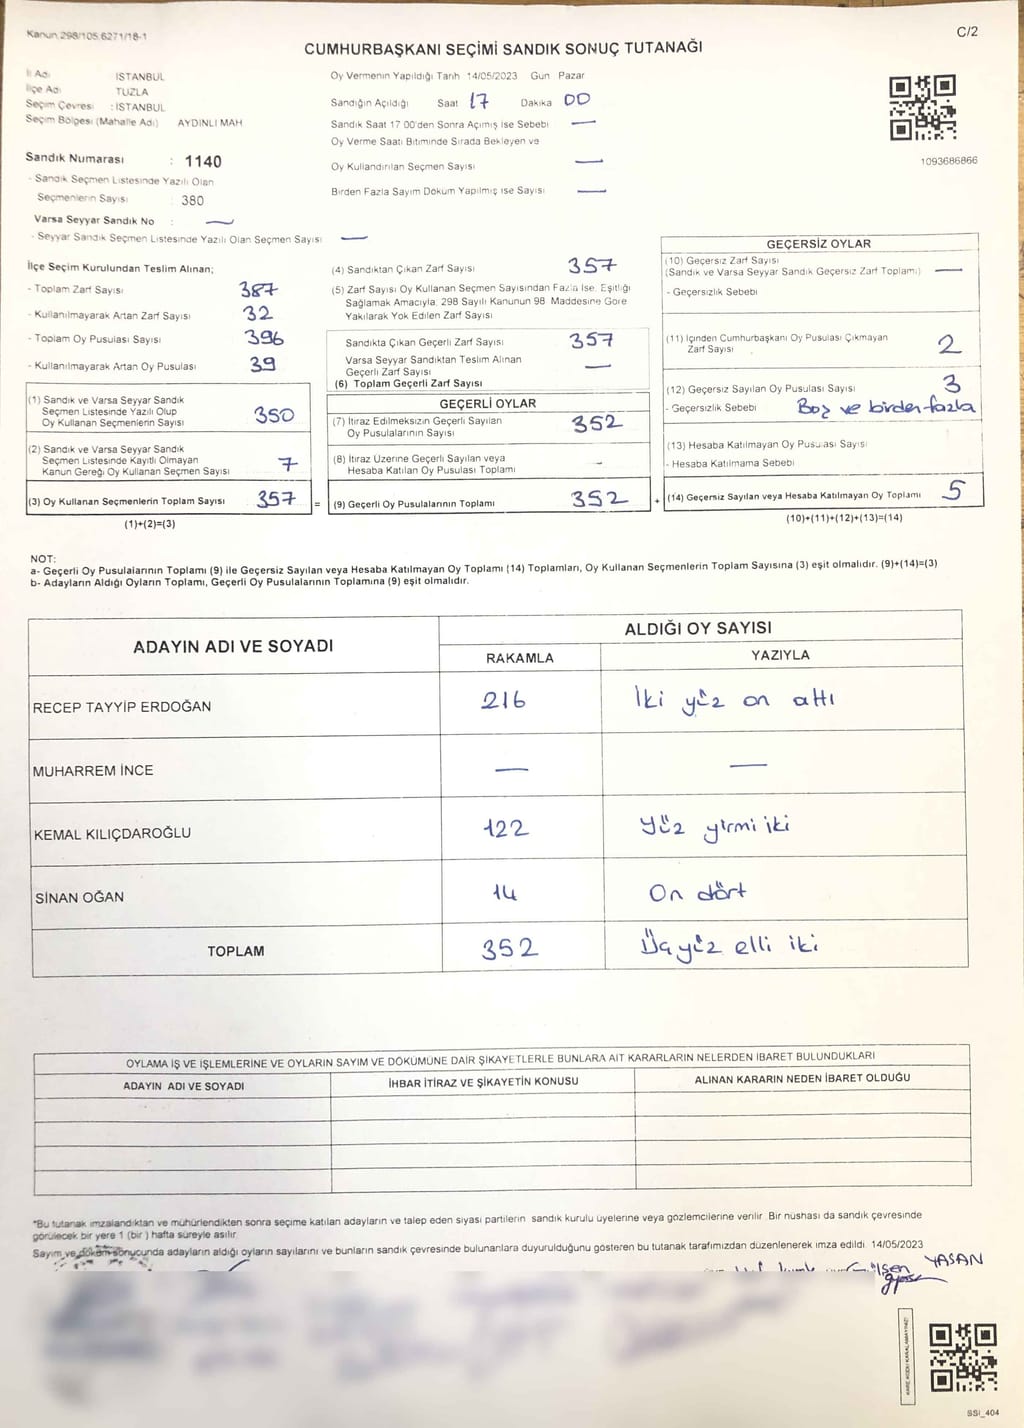 Kanun 298/105 6271/18-1
C/2
CUMHURBAŞKANI SEÇİMİ SANDIK SONUÇ TUTANAĞI
İl Adı İSTANBUL
İlçe Adı TUZLA
Seçim Çevresi : İSTANBUL
Seçim Bölgesi (Mahalle Adı) AYDINLI MAH
Sandık Numarası : 1140
- Sandık Seçmen Listesinde Yazılı Olan
Seçmenlerin Sayısı : 380
Varsa Seyyar Sandık No : —
- Seyyar Sandık Seçmen Listesinde Yazılı Olan Seçmen Sayısı —
Oy Vermenin Yapıldığı Tarih 14/05/2023 Gün Pazar
Sandığın Açıldığı Saat 17 Dakika 00
Sandık Saat 17 00'den Sonra Açımış İse Sebebi —
Oy Verme Saati Bitiminde Sırada Bekleyen ve
Oy Kullandırılan Seçmen Sayısı —
Birden Fazla Sayım Döküm Yapılmış ise Sayısı —
1093686866
İlçe Seçim Kurulundan Teslim Alınan;
- Toplam Zarf Sayısı 387
- Kullanılmayarak Artan Zarf Sayısı 32
- Toplam Oy Pusulası Sayısı 396
- Kullanılmayarak Artan Oy Pusulası 39
(1) Sandık ve Varsa Seyyar Sandık
Seçmen Listesinde Yazılı Olup
Oy Kullanan Seçmenlerin Sayısı 350
(2) Sandık ve Varsa Seyyar Sandık
Seçmen Listesinde Kayıtlı Olmayan
Kanun Gereği Oy Kullanan Seçmen Sayısı 7
(3) Oy Kullanan Seçmenlerin Toplam Sayısı 357 =
(1)+(2)=(3)
(4) Sandıktan Çıkan Zarf Sayısı 357
(5) Zarf Sayısı Oy Kullanan Seçmen Sayısından Fazla İse, Eşitliği
Sağlamak Amacıyla, 298 Sayılı Kanunun 98 Maddesine Göre
Yakılarak Yok Edilen Zarf Sayısı
Sandıkta Çıkan Geçerli Zarf Sayısı 357
Varsa Seyyar Sandıktan Teslim Alınan
Geçerli Zarf Sayısı —
(6) Toplam Geçerli Zarf Sayısı
GEÇERLİ OYLAR
(7) İtiraz Edilmeksizin Geçerli Sayılan
Oy Pusulalarının Sayısı 352
(8) İtiraz Üzerine Geçerli Sayılan veya
Hesaba Katılan Oy Pusulası Toplamı -
(9) Geçerli Oy Pusulalarının Toplamı 352 +
GEÇERSİZ OYLAR
(10) Geçersiz Zarf Sayısı
(Sandık ve Varsa Seyyar Sandık Geçersiz Zarf Toplamı) —
- Geçersizlik Sebebi
(11) İçinden Cumhurbaşkanı Oy Pusulası Çıkmayan
Zarf Sayısı 2
(12) Geçersiz Sayılan Oy Pusulası Sayısı 3
- Geçersizlik Sebebi Boş ve birden fazla
(13) Hesaba Katılmayan Oy Pusulası Sayısı
- Hesaba Katılmama Sebebi
(14) Geçersiz Sayılan veya Hesaba Katılmayan Oy Toplamı 5
(10)+(11)+(12)+(13)=(14)
NOT:
a- Geçerli Oy Pusulalarının Toplamı (9) ile Geçersiz Sayılan veya Hesaba Katılmayan Oy Toplamı (14) Toplamları, Oy Kullanan Seçmenlerin Toplam Sayısına (3) eşit olmalıdır. (9)+(14)=(3)
b- Adayların Aldığı Oyların Toplamı, Geçerli Oy Pusulalarının Toplamına (9) eşit olmalıdır.
ADAYIN ADI VE SOYADI
ALDIĞI OY SAYISI
RAKAMLA YAZIYLA
RECEP TAYYİP ERDOĞAN 216 İki yüz on altı
MUHARREM İNCE — —
KEMAL KILIÇDAROĞLU 122 Yüz yirmi iki
SİNAN OĞAN 14 On dört
TOPLAM 352 Üç yüz elli iki
OYLAMA İŞ VE İŞLEMLERİNE VE OYLARIN SAYIM VE DÖKÜMÜNE DAİR ŞİKAYETLERLE BUNLARA AİT KARARLARIN NELERDEN İBARET BULUNDUKLARI
ADAYIN ADI VE SOYADI İHBAR İTİRAZ VE ŞİKAYETİN KONUSU ALINAN KARARIN NEDEN İBARET OLDUĞU
*Bu tutanak imzalandıktan ve mühürlendikten sonra seçime katılan adayların ve talep eden siyasi partilerin sandık kurulu üyelerine veya gözlemcilerine verilir. Bir nüshası da sandık çevresinde
görülecek bir yere 1 (bir ) hafta süreyle asılır.
Sayım ve döküm sonucunda adayların aldığı oyların sayılarını ve bunların sandık çevresinde bulunanlara duyurulduğunu gösteren bu tutanak tarafımızdan düzenlenerek imza edildi. 14/05/2023
Gülşen YASAN
KARE KODU KARALAMAYINIZ!
SSI_404